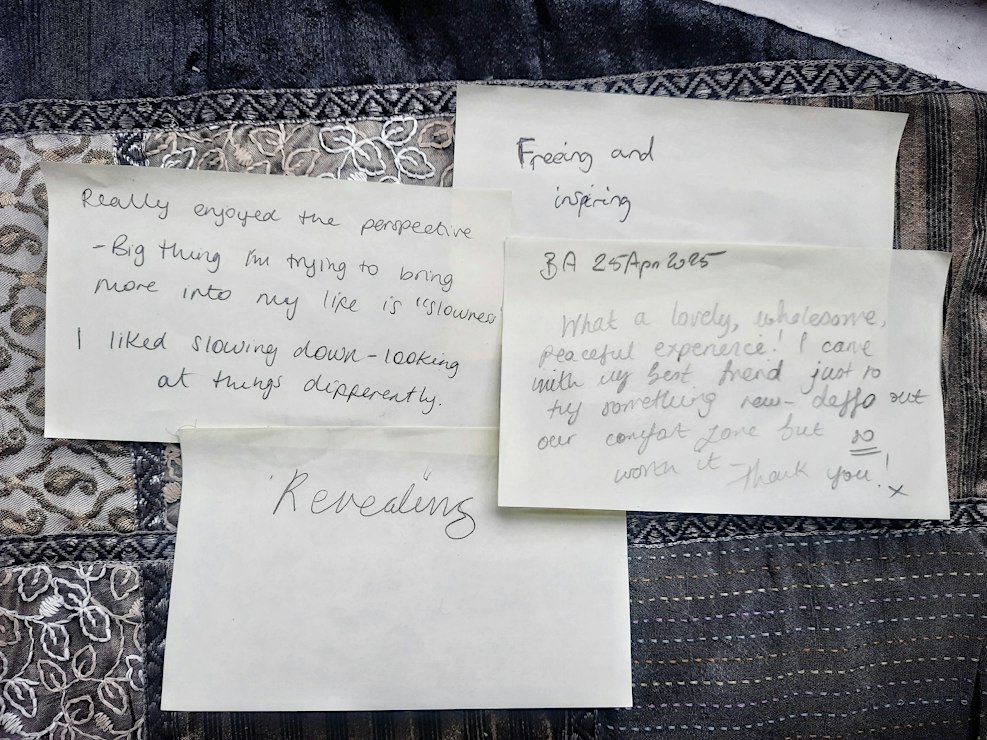 Really enjoyed the perspective
- Big thing I'm trying to bring
more into my life is "slowness"
I liked slowing down - looking
at things differently.
Freeing and
inspiring
BA 25 Apr 2025
What a lovely, wholesome,
peaceful experience! I came
with my best friend just to
try something new - deffo out
our comfort zone but so
worth it Thank you! x
"Revealing"